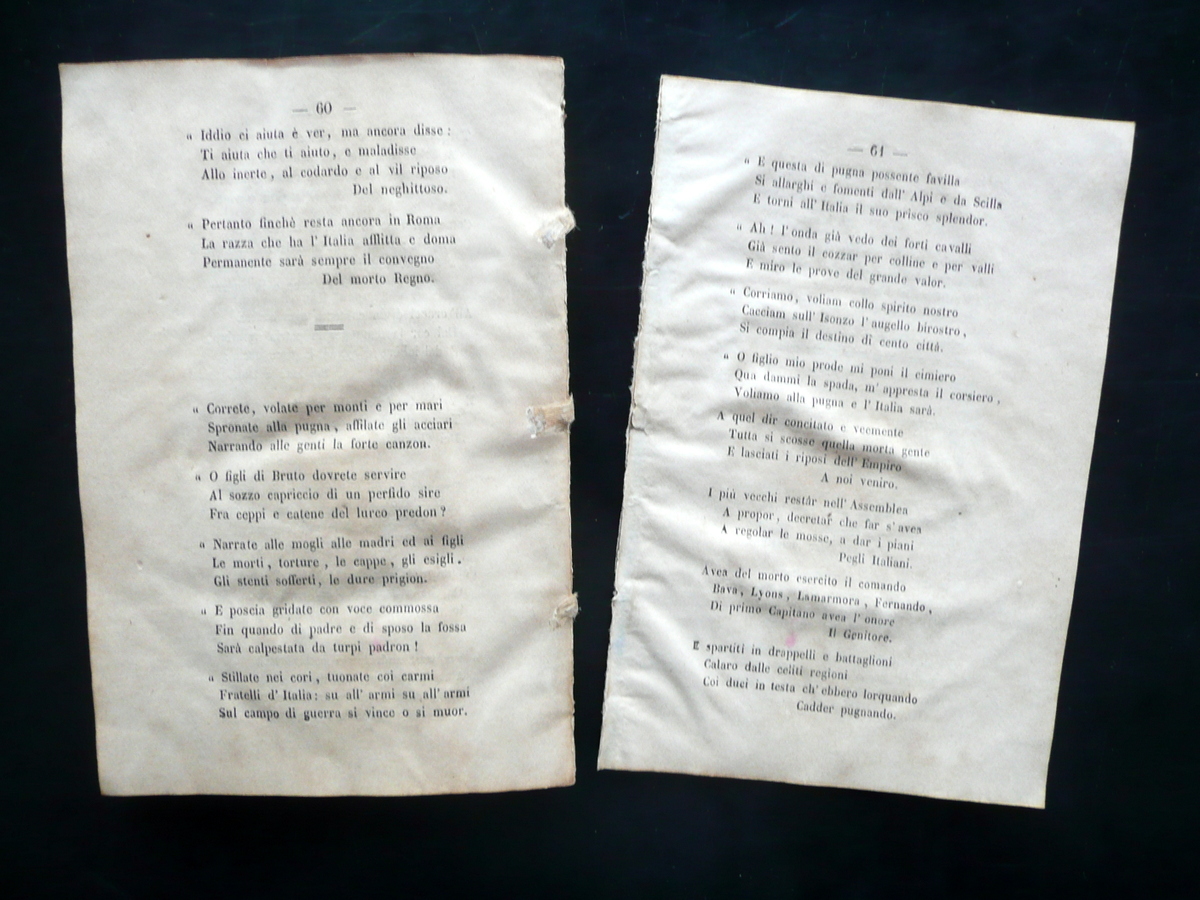 — 60 —
« Iddio ci aiuta è ver, ma ancora disse :
Ti aiuta che ti aiuto, e maladisse
Allo inerte, al codardo e al vil riposo
Del neghittoso.
« Pertanto finchè resta ancora in Roma
La razza che ha l' Italia afflitta e doma
Permanente sarà sempre il convegno
Del morto Regno.
« Correte, volate per monti e per mari
Spronate alla pugna, affilate gli acciari
Narrando alle genti la forte canzon.
« O figli di Bruto dovrete servire
Al sozzo capriccio di un perfido sire
Fra ceppi e catene del lurco predon?
« Narrate alle mogli alle madri ed ai figli
Le morti, torture, le cappe, gli esigli.
Gli stenti sofferti, le dure prigion.
« E poscia gridate con voce commossa
Fin quando di padre e di sposo la fossa
Sarà calpestata da turpi padron!
« Stillate nei cori, tuonate coi carmi
Fratelli d' Italia: su all' armi su all' armi
Sul campo di guerra si vince o si muor.
— 61 —
« E questa di pugna possente favilla
Si allarghi e fomenti dall' Alpi e da Scilla
E torni all' Italia il suo prisco splendor.
« Ah! l'onda già vedo dei forti cavalli
Già sento il cozzar per colline e per valli
E miro le prove del grande valor.
« Corriamo, voliam collo spirito nostro
Cacciam sull' Isonzo l'augello birostro,
Si compia il destino di cento città.
« O figlio mio prode mi poni il cimiero
Qua dammi la spada, m' appresta il corsiero,
Voliamo alla pugna e l' Italia sarà.
A quel dir concitato e veemente
Tutta si scosse quella morta gente
E lasciati i riposi dell' Empiro
A noi veniro.
I più vecchi restâr nell' Assemblea
A propor, decretar che far s' avea
A regolar le mosse, a dar i piani
Pegli Italiani.
Avea del morto esercito il comando
Bava, Lyons, Lamarmora, Fernando,
Di primo Capitano avea l'onore
Il Genitore.
E spartiti in drappelli e battaglioni
Calaro dalle celiti regioni
Coi duci in testa ch' ebbero lorquando
Cadder pugnando.